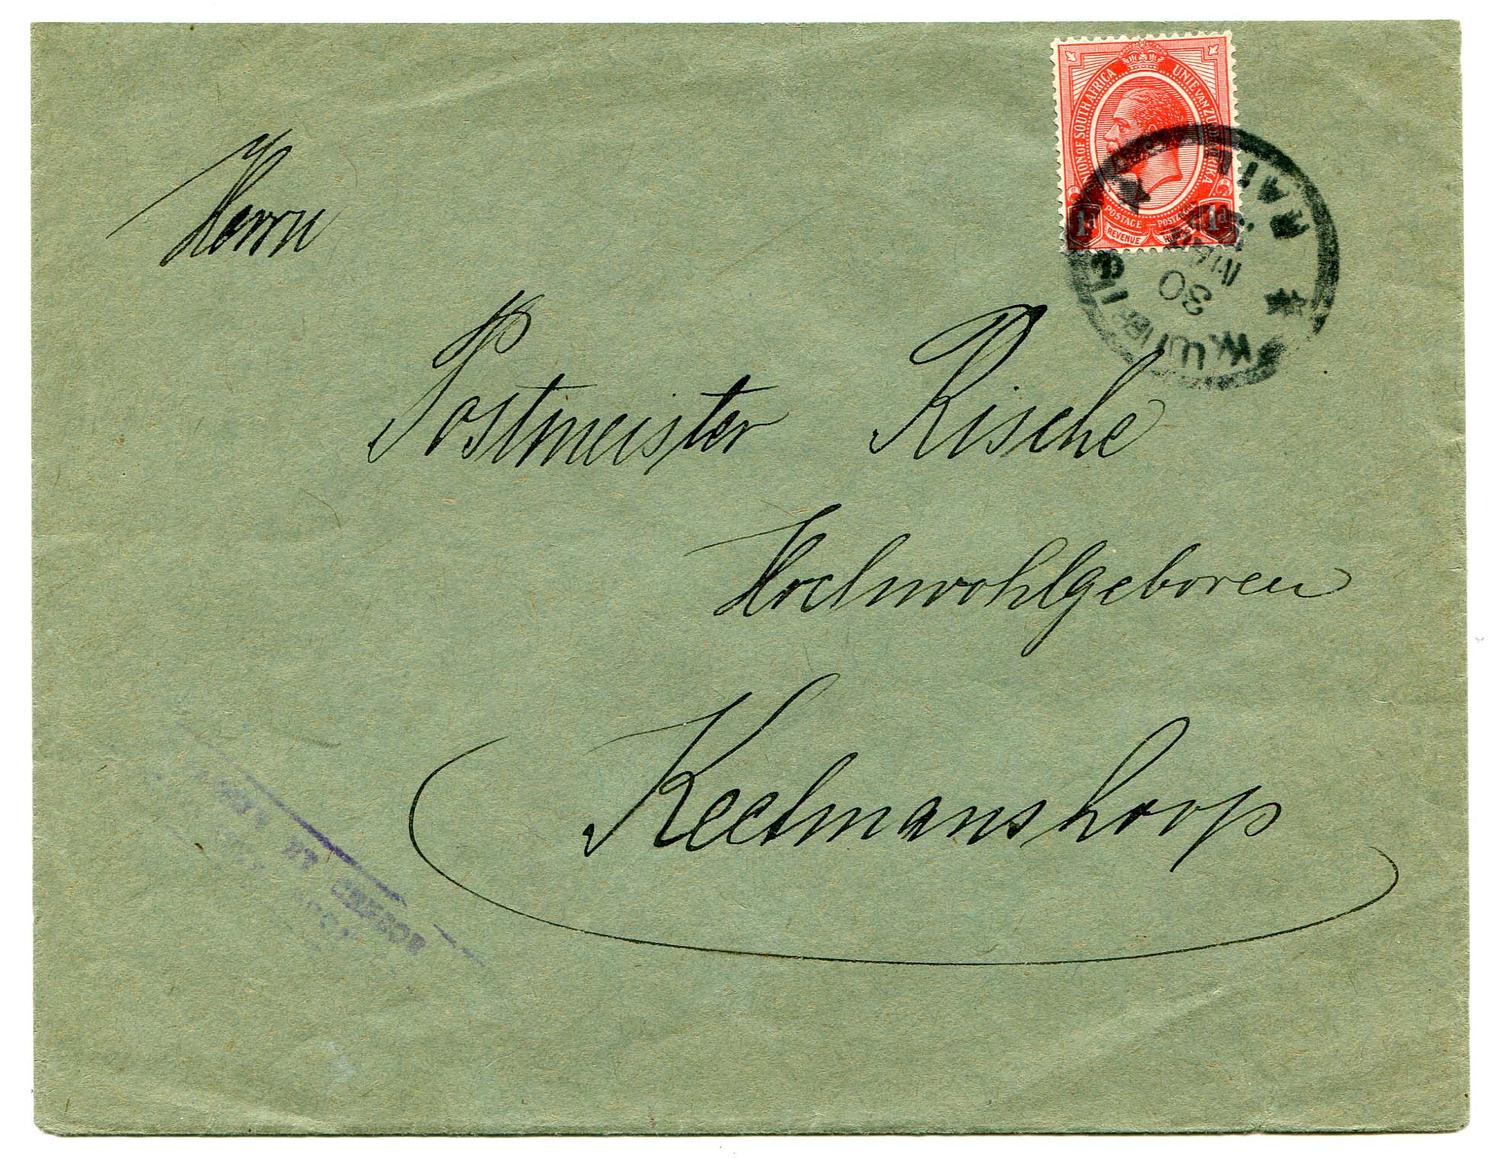 UNION OF SOUTH AFRICA UNIE VAN ZUID AFRIKA
POSTAGE POSTZEGEL
REVENUE
1d 1d
RAIL
30
Herrn
Postmeister Rische
Hochwohlgeboren
Keetmanshoop
BY CENSOR